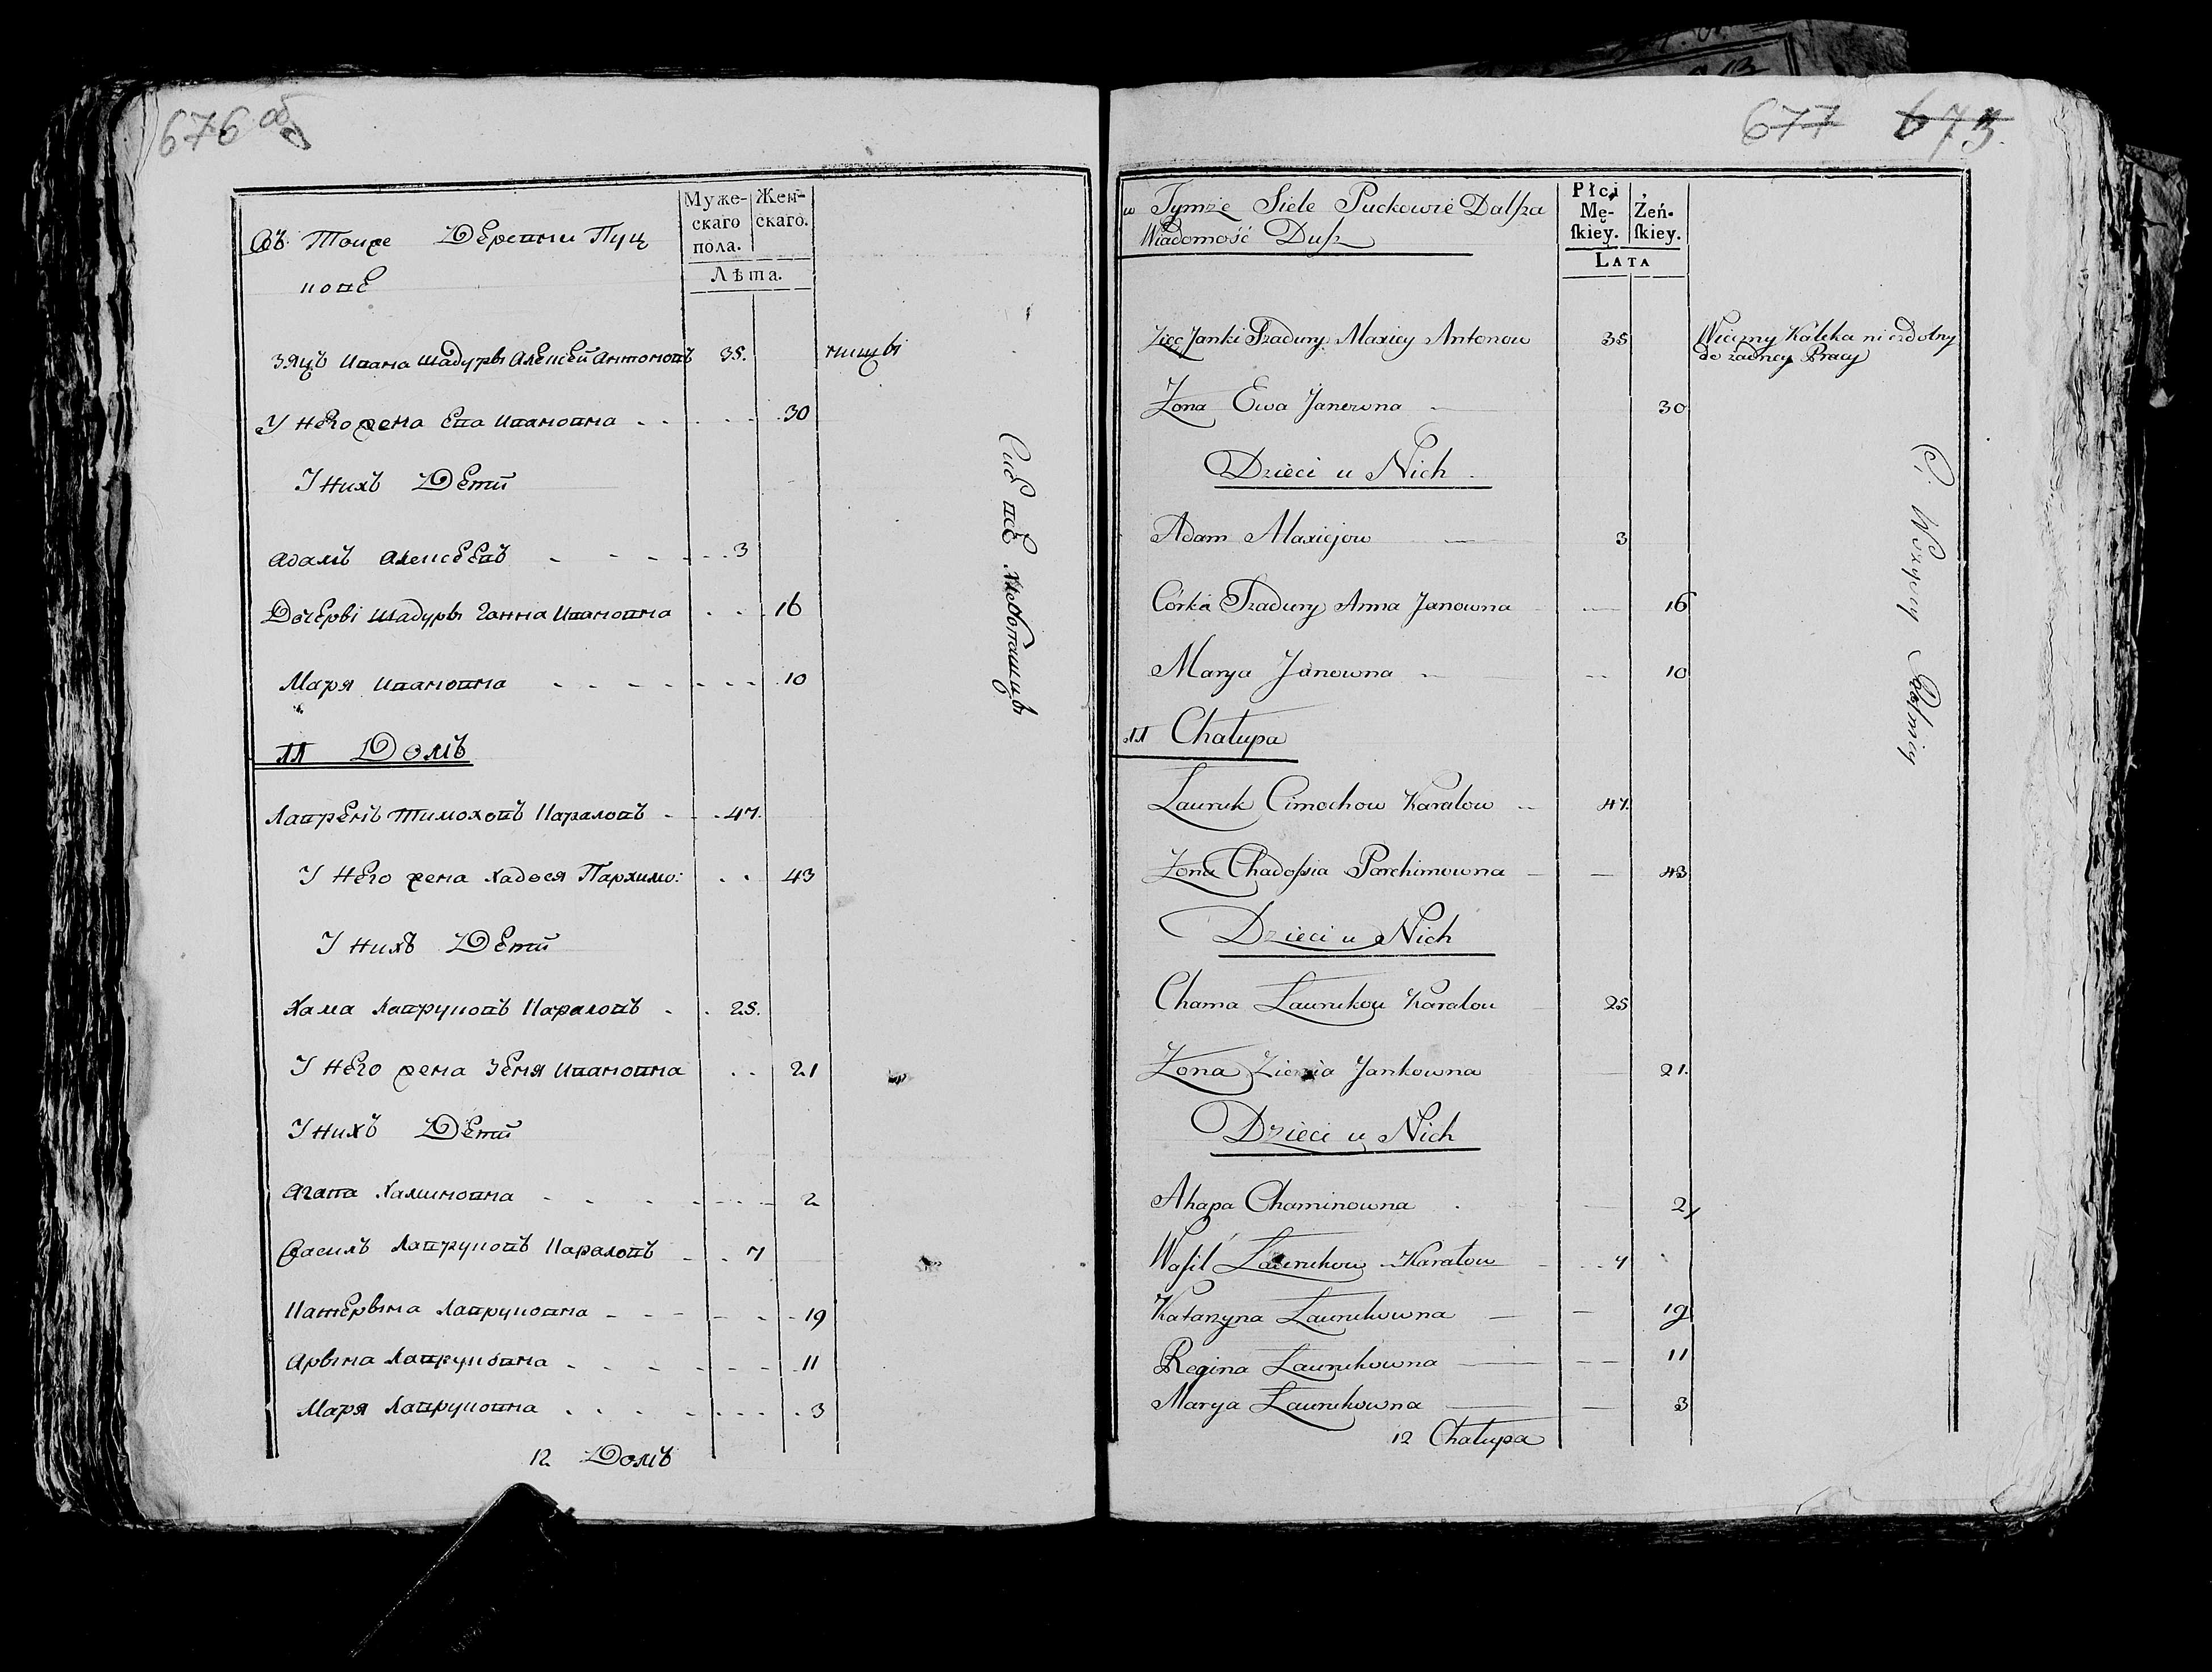 676 об
Въ Тойже Деревни Пуц
ковѣ
Муже-
скаго
пола.
Жен-
скаго.
Лѣта.
зяць Ивана Шадуры Алексей Антоновъ 35. нищы
У него жена Ева Ивановна 30
У нихъ Дети
Адамъ Алексеевъ 3
Дочеры Шадуры Ганна Ивановна 16
Маря Ивановна 10
11 Домъ
Лавренъ Тимоховъ Каралювъ 47.
У него жена Хадося Пархимо: 43
У нихъ Дети
Хама Лавруковъ Каралювъ 25.
У него жена Зеня Ивановна 21
У нихъ Дети
Агапа Хаминовна 2
Василь Лавруковъ Каралювъ 7
Катерына Лавруковна 19
Арына Лавруковна 11
Маря Лавруковна 3
12 Домъ
677 673
w Tymże Siele Puckowie Dalsza
Wiadomość Dusz
Płci
Mę-
skiey.
Zeń-
skiey.
LATA
Zięć Janki Szadury Maxiey Antonow 35 Wieczny Kaleka niezdolny
do żadney Pracy
Zona Ewa Janowna 30
Dzieci u Nich
Adam Maxiejow 3
Córka Szadury Anna Janowna 16
Marya Janowna 10
11 Chałupa
Ławruk Cimochow Karalow 47.
Zona Chadosia Parchimowna 43
Dzieci u Nich
Chama Ławrukow Karalow 25
Zona Zienia Jankowna 21.
Dzieci u Nich
Ahapa Chaminowna 2
Wasil Ławrukow Karalow 7
Katarzyna Ławrukowna 19
Regina Ławrukowna 11
Marya Ławrukowna 3
12 Chałupa